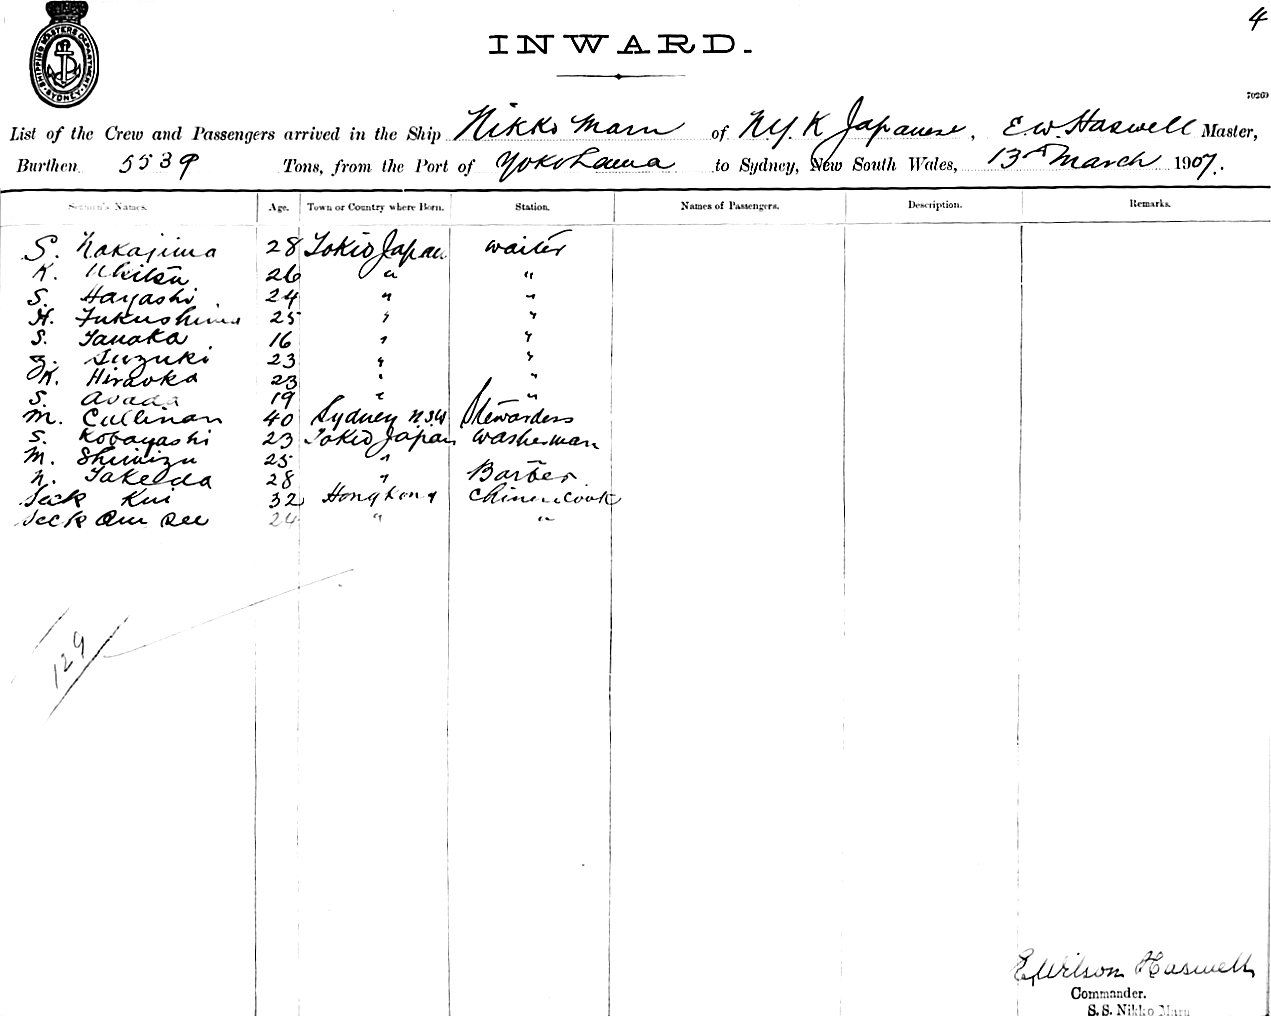 4
SHIPPING MASTERS DEPARTMENT SYDNEY
INWARD.
70269
List of the Crew and Passengers arrived in the Ship Nikko Maru of N.Y.K Japanese, E W. Haswell Master,
Burthen 5539 Tons, from the Port of Yokohama to Sydney, New South Wales, 13th March 1907.
Seamen's Names. Age. Town or Country where Born. Station. Names of Passengers. Description. Remarks.
S. Nakajima 28 Tokio Japan waiter
K. Ukitsu 26 " "
S. Hayashi 24 " "
H. Fukushima 25 " "
S. Tanaka 16 " "
Suzuki 23 " "
K. Hiraoka 23 " "
S. 19 " "
M. Cullinan 40 Sydney N.S.W Stewardess
S. Kobayashi 23 Tokio Japan washerman
M. Shimizu 25 " "
N. Takeda 28 " Barber
Seck Kui 32 Hong Kong Chinese cook
Seck 24 " "
129
E. Wilson Haswell
Commander.
S.S. Nikko Maru